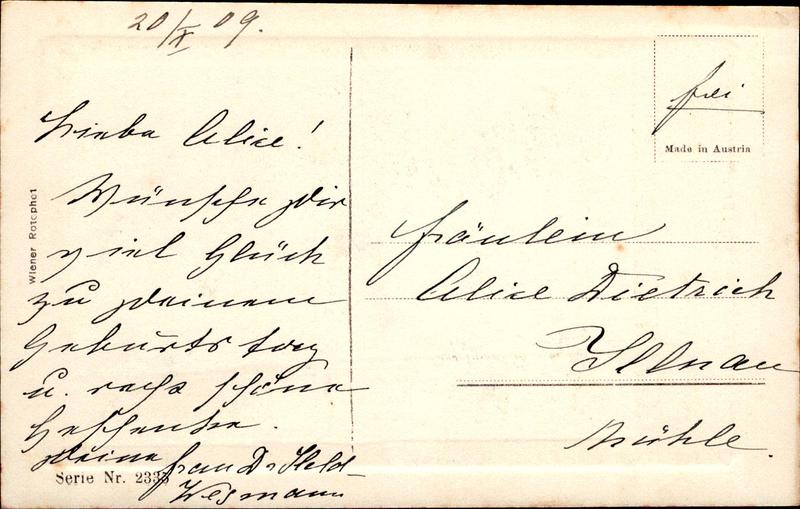 20/X 09.
Liebe Alice!
Wünsche Dir
viel Glück
zu Deinem
Geburtstag
u. recht schöne
Geschenke.
Deine Frau Dr Held-
Wegmann
Wiener Rotophot
Serie Nr. 2335
frei
Made in Austria
Fräulein
Alice Dietrich
Illnau
Mühle.